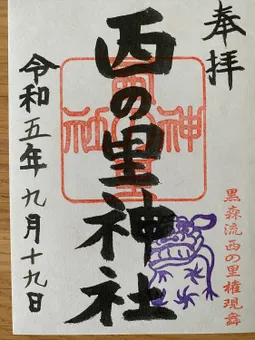 奉拝
西の里神社
令和五年九月十九日
黒森流西の里権現舞